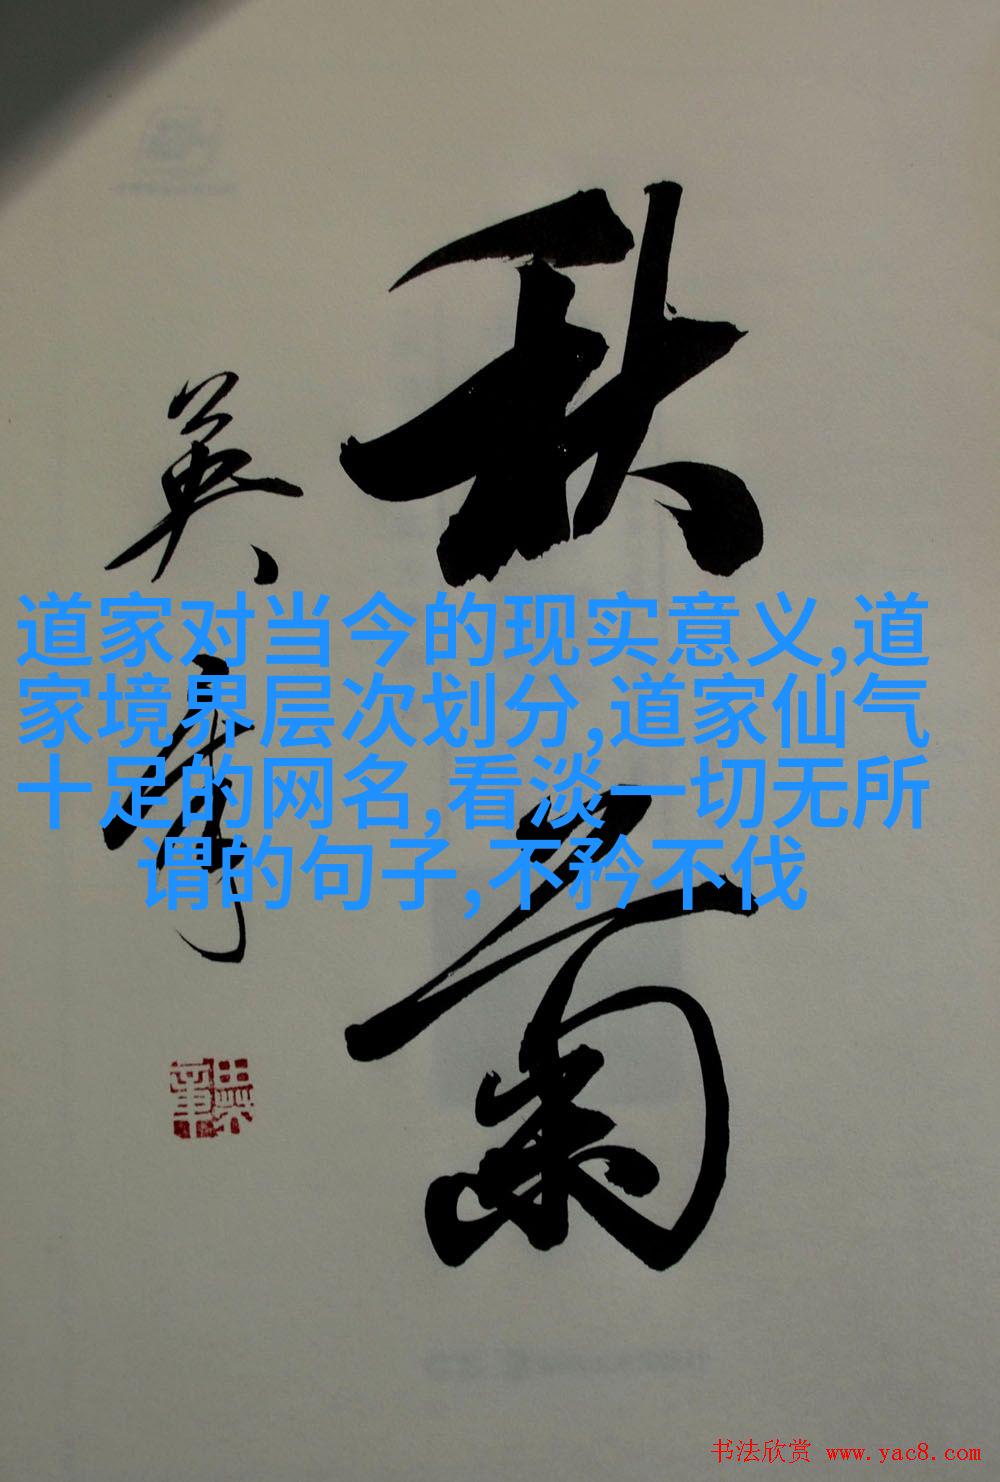 秋菊
英章
道家对当今的现实意义,道
家境界层次划分,道家仙气
十足的网名,看淡一切无所
谓的句子,不矜不伐
书法欣赏 www.yac8.com